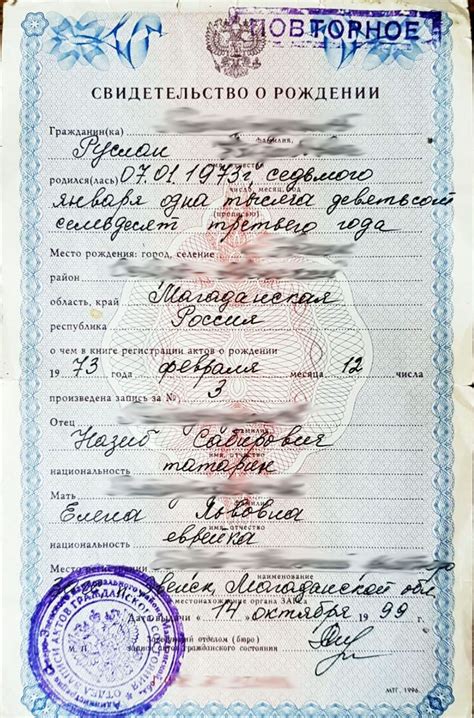 ПОВТОРНОЕ
СВИДЕТЕЛЬСТВО О РОЖДЕНИИ
Гражданин(ка)
фамилия,
Руслан
родился(лась) 07.01.1973г седьмого
число, месяц, год
января одна тысяча девятьсот
(прописью)
семьдесят третьего года
Место рождения: город, селение
район
область, край Магаданская
республика Россия
о чем в книге регистрации актов о рождении
1973 года февраля месяца 12 числа
произведена запись за № 3
Отец
фамилия
Назиб Сабирович
имя, отчество
национальность татарин
Мать
Елена Львовна
имя, отчество
национальность еврейка
Место регистрации
наименование
Магаданской обл
местонахождение органа ЗАГСа
Дата выдачи 14 октября 1999 г.
М. П.
Заведующий отделом (бюро)
записи актов гражданского состояния
МТГ. 1996.